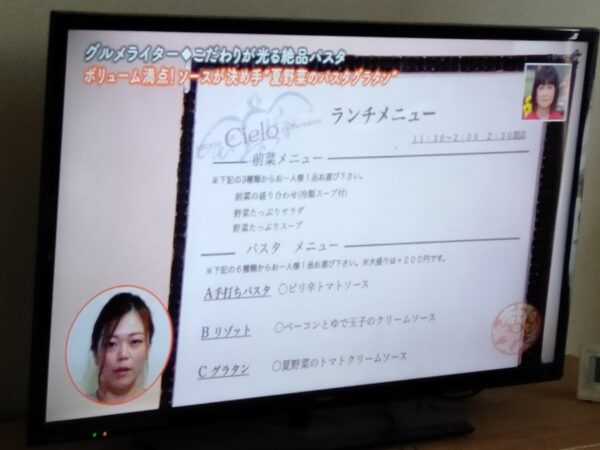 グルメライター◆こだわりが光る絶品パスタ
ボリューム満点！ソースが決め手"夏野菜のパスタグラタン"
Cielo
ランチメニュー
11:30～2:00 2:30閉店
前菜メニュー
※下記の3種類からお一人様1品お選び下さい。
前菜の盛り合わせ(冷製スープ付)
野菜たっぷりサラダ
野菜たっぷりスープ
パスタ メニュー
※下記の6種類からお一人様1品お選び下さい。※大盛りは+200円です。
A手打ちパスタ 〇ピリ辛トマトソース
Bリゾット 〇ベーコンとゆで玉子のクリームソース
Cグラタン 〇夏野菜のトマトクリームソース